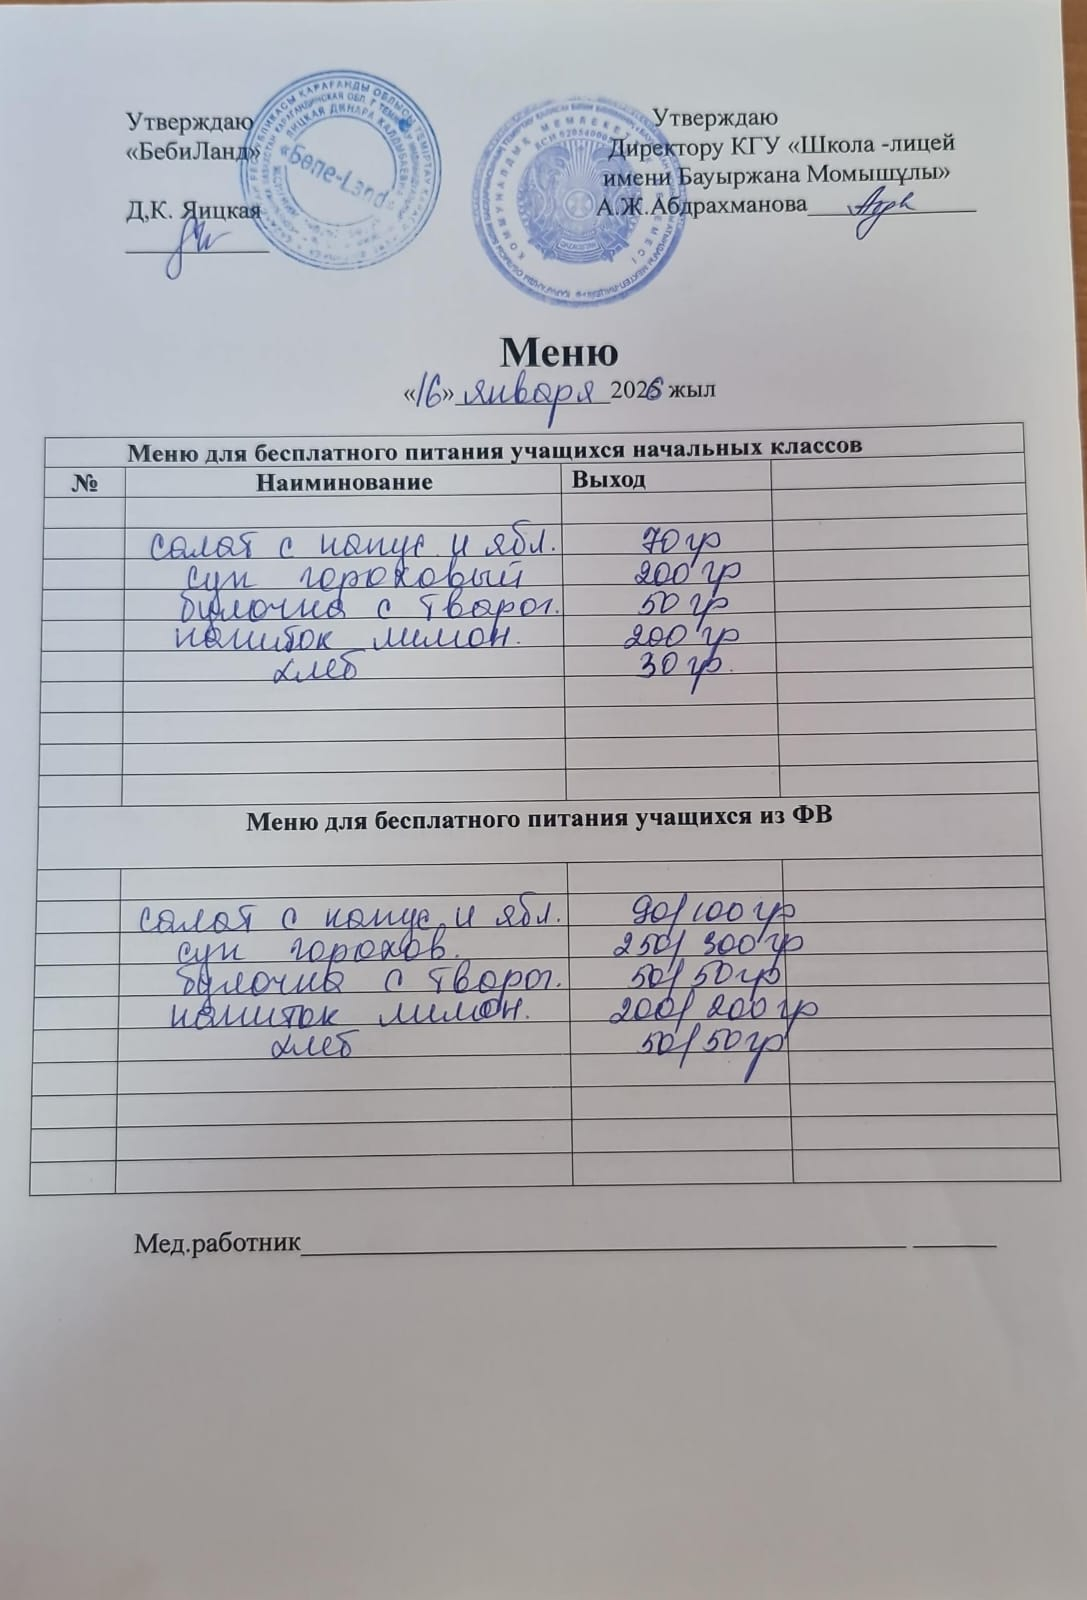 Утверждаю
«БебиЛанд»
Д,К. Яицкая
«Бөпе-Land»
Утверждаю
Директору КГУ «Школа -лицей
имени Бауыржана Момышұлы»
А.Ж.Абдрахманова
Меню
«16» января 2026 жыл
Меню для бесплатного питания учащихся начальных классов
№ Наиминование Выход
салат с капус и ябл. 70 гр
суп гороховый 200 гр
булочка с творог. 50 гр
напиток лимон. 200 гр
хлеб 30 гр.
Меню для бесплатного питания учащихся из ФВ
салат с капус. и ябл. 90/100 гр
суп горохов. 250/300 гр
булочка с творог. 50/50 гр
напиток лимон. 200/200 гр
хлеб 50/50 гр
Мед.работник